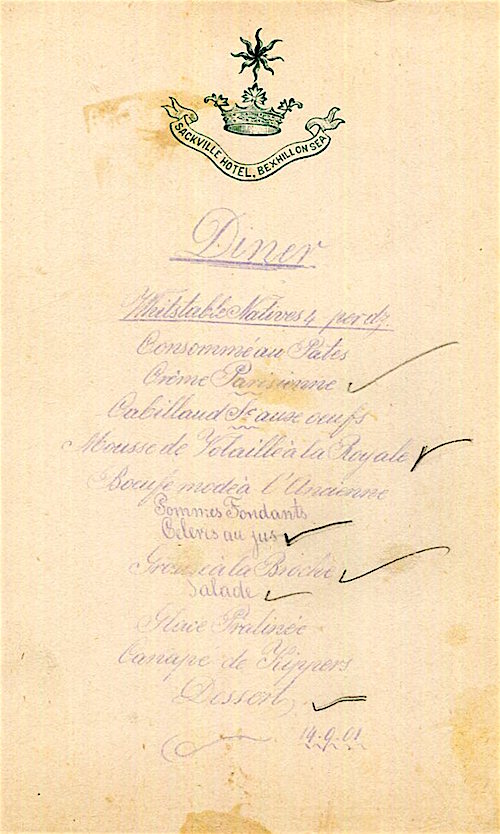 SACKVILLE HOTEL, BEXHILL ON SEA
Diner
Whitstable Natives 4 per dz.
Consommé au Pates
Crème Parisienne
Cabillaud Sce aux oeufs
Mousse de Volaille à la Royale
Boeuf e mode à l'Ancienne
Pommes Fondants
Celeris au jus
Grouse à la Broche
Salade
Glace Pralinée
Canapé de Kippers
Dessert
14.9.01